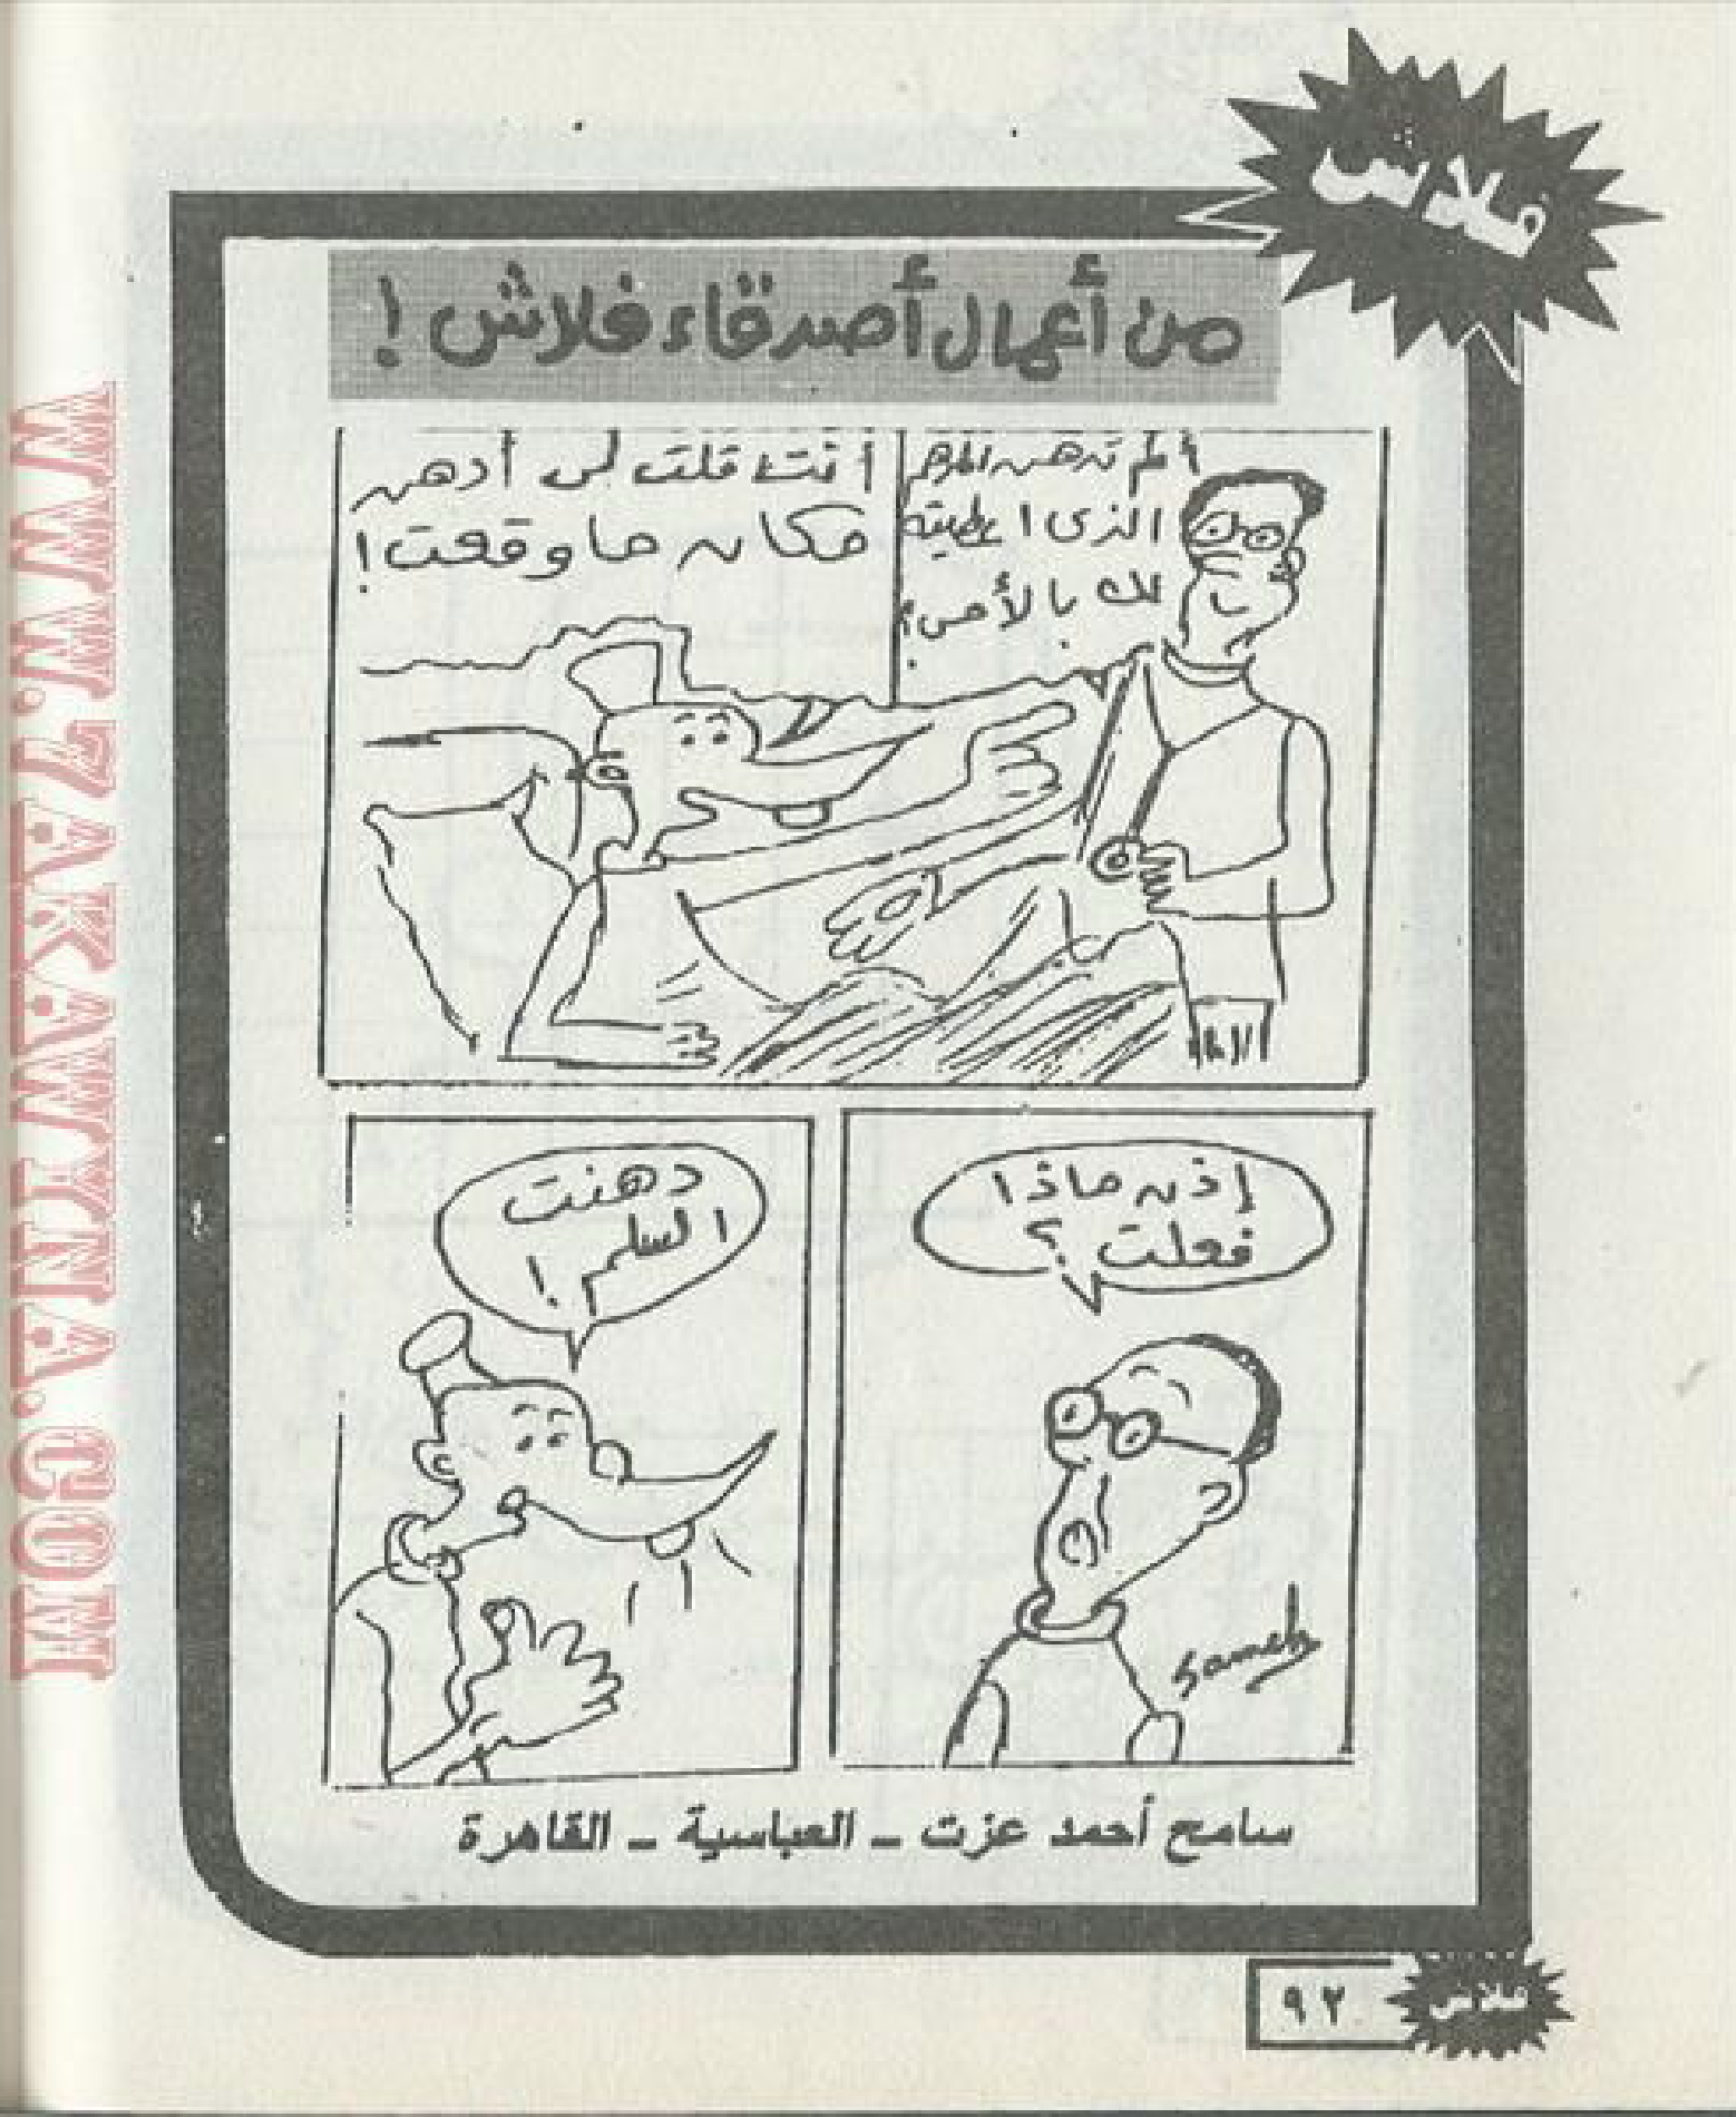 فلاش
من أعمال أصدقاء فلاش !
ألم تدهن المرهم
الذى اعطيته
لك بالأمس ؟
أنت قلت لى أدهن
مكان ما وقعت !
إذن ماذا
فعلت ؟
دهنت
السلم !
Sameh
سامح أحمد عزت ــ العباسية ــ القاهرة
٩٢
فلاش
WWW.7AKAWITNA.COM